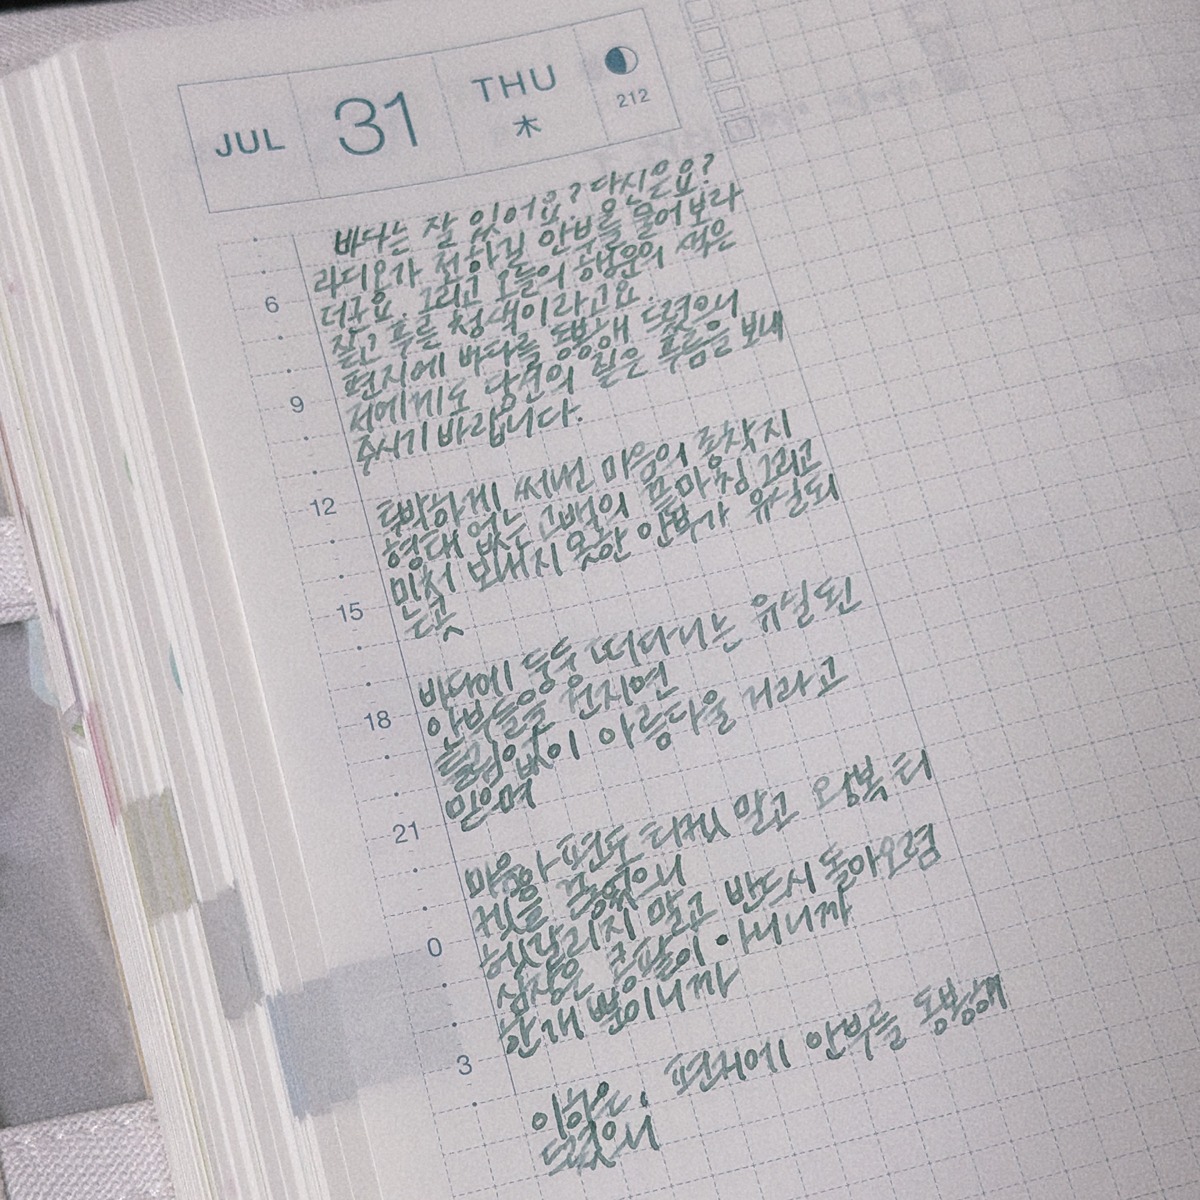 JUL 31 THU 木 212
바다는 잘 있어요? 당신은요?
라디오가 전하길 안부를 물어보라
더군요. 그리고 오늘의 행운의 색은
짙고 푸를 청색이라고요.
편지에 바다를 동봉해 드렸으니
저에게도 당신의 짙은 푸름을 보내
주시기 바랍니다.
6
9
투박하게 써내린 마음의 도착지
형태 없는 고백의 끝마침 그리고
미처 보내지 못한 안부가 유실되
는 곳
12
15
바다에 둥둥 떠다니는 유실된
안부들을 건지면
틀림없이 아름다울 거라고
믿으며
18
21
마음아 편도 티켓 말고 왕복 티
켓을 끊었으니
헷갈리지 말고 반드시 돌아오렴
심장은 한 개뿐이니까
0
3
이하은, 편지에 안부를 동봉해
드렸으니